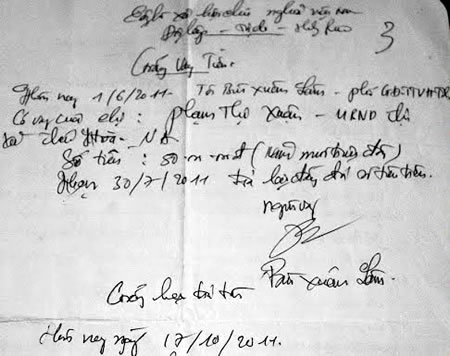 Cộng xã hội chủ nghĩa việt nam
Độc lập - Tự do - Hạnh Phúc
3
Giấy Vay Tiền.
Hôm nay 1/6/2011. Tôi Bùi Xuân Lâm - phó
Có vay của chị : phạm Thị Xuân - UBND thị
- NA
Số tiền : 50 (Năm mươi triệu đồng)
Hẹn 30/7/2011 trả
người vay
Bùi Xuân Lâm.
Giấy hẹn trả
Hôm nay ngày 17/10/2011.